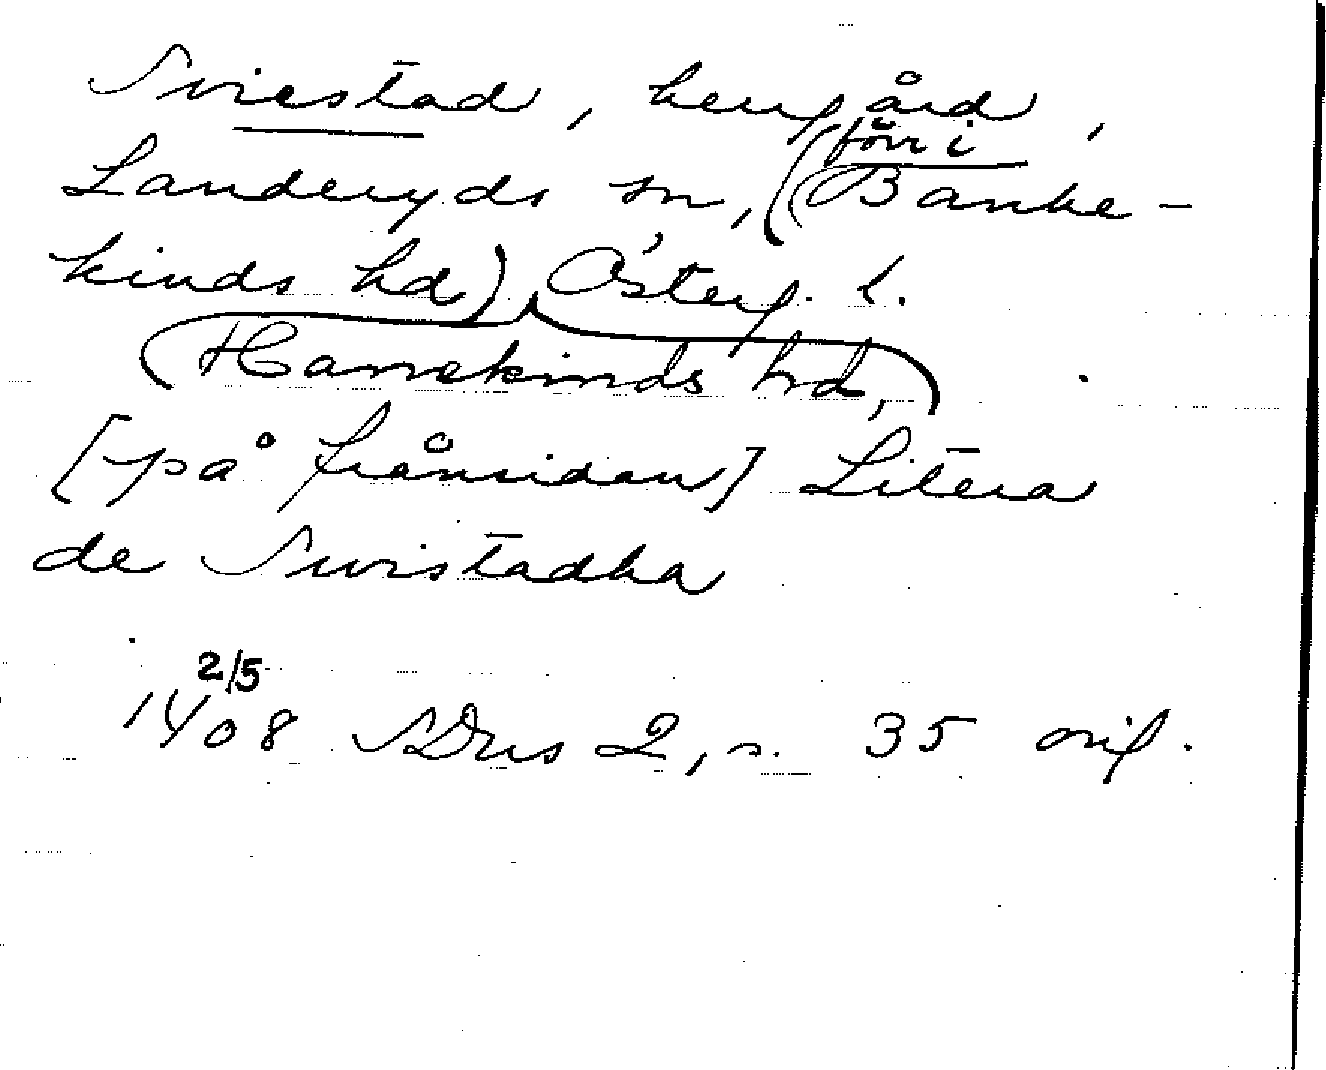 Sviestad, herrgård,
Landeryds sn, (förr i Banke-
kinds hd) Österg. l.
(Hanekinds hd,)
[på frånsidan] Litera
de Swistadha
2/5
1408 SDns 2, s. 35 orig.